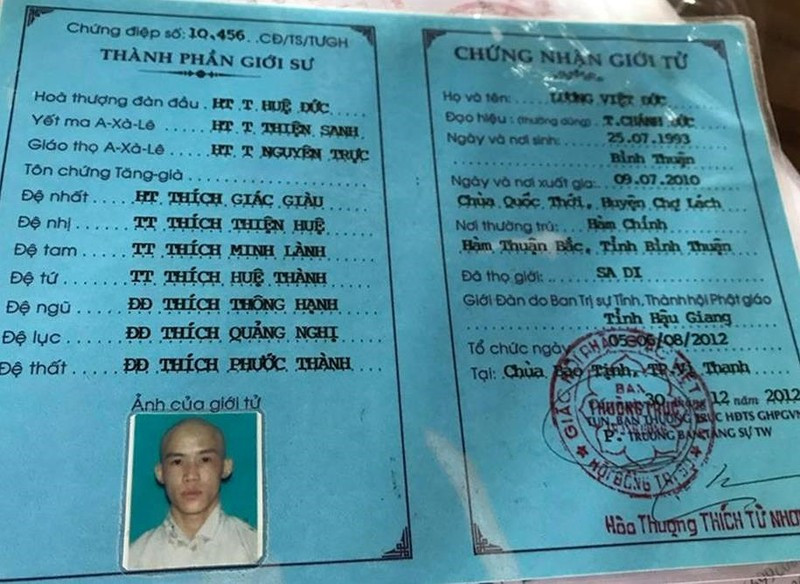 Chứng điệp số: 10.456. .CĐ/TS/TƯGH
THÀNH PHẦN GIỚI SƯ
Hoà thượng đàn đầu . HT. T. HUỆ ĐỨC
Yết ma A-Xà-Lê ..... HT. T. THIỆN SANH
Giáo thọ A-Xà-Lê ..... HT. T NGUYÊN TRỰC
Tôn chứng Tăng-già
Đệ nhất ..... HT THÍCH GIÁC GIÀU
Đệ nhị ..... TT THÍCH THIỆN HUỆ
Đệ tam ..... TT THÍCH MINH LÀNH
Đệ tứ ..... TT THÍCH HUỆ THÀNH
Đệ ngũ ..... ĐĐ THÍCH THÔNG HẠNH
Đệ lục ..... ĐĐ THÍCH QUẢNG NGHỊ
Đệ thất ..... ĐĐ THÍCH PHƯỚC THÀNH
Ảnh của giới tử
CHỨNG NHẬN GIỚI TỬ
Họ và tên: ..... LƯƠNG VIỆT ĐỨC
Đạo hiệu : (thường dùng) T.CHÁNH ĐỨC
Ngày và nơi sinh: ..... 25.07.1993
Bình Thuận
Ngày và nơi xuất gia: 09.07.2010
Chùa Quốc Thới, Huyện Chợ Lách
Nơi thường trú: Hàm Chính
Hàm Thuận Bắc, Tỉnh Bình Thuận
Đã thọ giới: SA DI
Giới Đàn do Ban Trị sự Tỉnh, Thành hội Phật giáo
Tỉnh Hậu Giang
Tổ chức ngày 05-06/08/2012
Tại: Chùa Bảo Tịnh, TP.Vị Thanh
30 tháng 12 năm 2012
TUN. BAN THƯỜNG TRỰC HĐTS GHPGVN
P. TRƯỞNG BAN TĂNG SỰ TW
BAN
THƯỜNG TRỰC
HỘI ĐỒNG TRỊ SỰ
Hòa Thượng THÍCH TỪ NHƠN